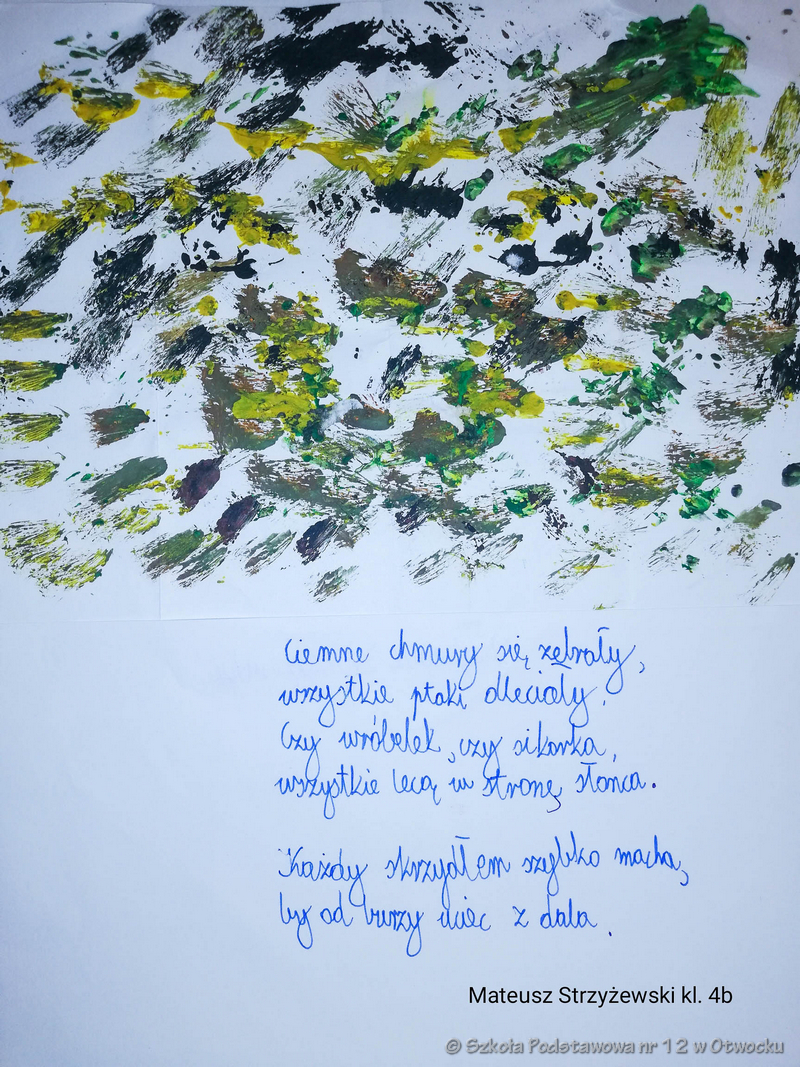 Ciemne chmury się zebrały,
wszystkie ptaki dleciały.
Czy wróbelek, czy sikorka,
wszystkie lecą w stronę słońca.
Każdy skrzydłem szybko macha,
by od burzy uciec z dala.
Mateusz Strzyżewski kl. 4b
© Szkoła Podstawowa nr 12 w Otwocku